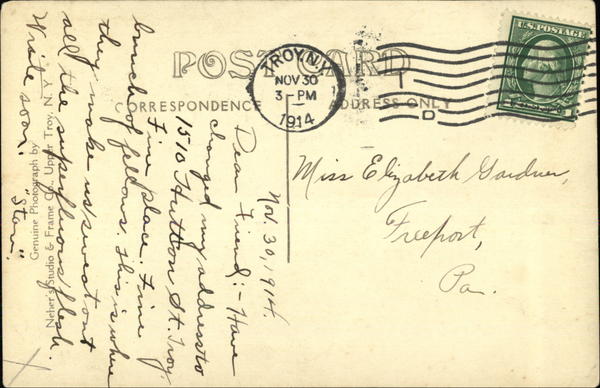 POST CARD
CORRESPONDENCE
ADDRESS ONLY
TROY, N.Y.
NOV 30
3-PM
1914
D
U.S. POSTAGE
Nov. 30, 1914.
Dear Friend:- Have
changed my address to
1510 Hutton St. Troy
Fine place. Fine
bunch of fellows. This is where
they make us sweat out
all the superfluous flesh.
Write soon.
"Stan."
Miss Elizabeth Gardner,
Freeport,
Pa.
Genuine Photograph by
Neher's Studio & Frame Co., Upper Troy, N. Y.